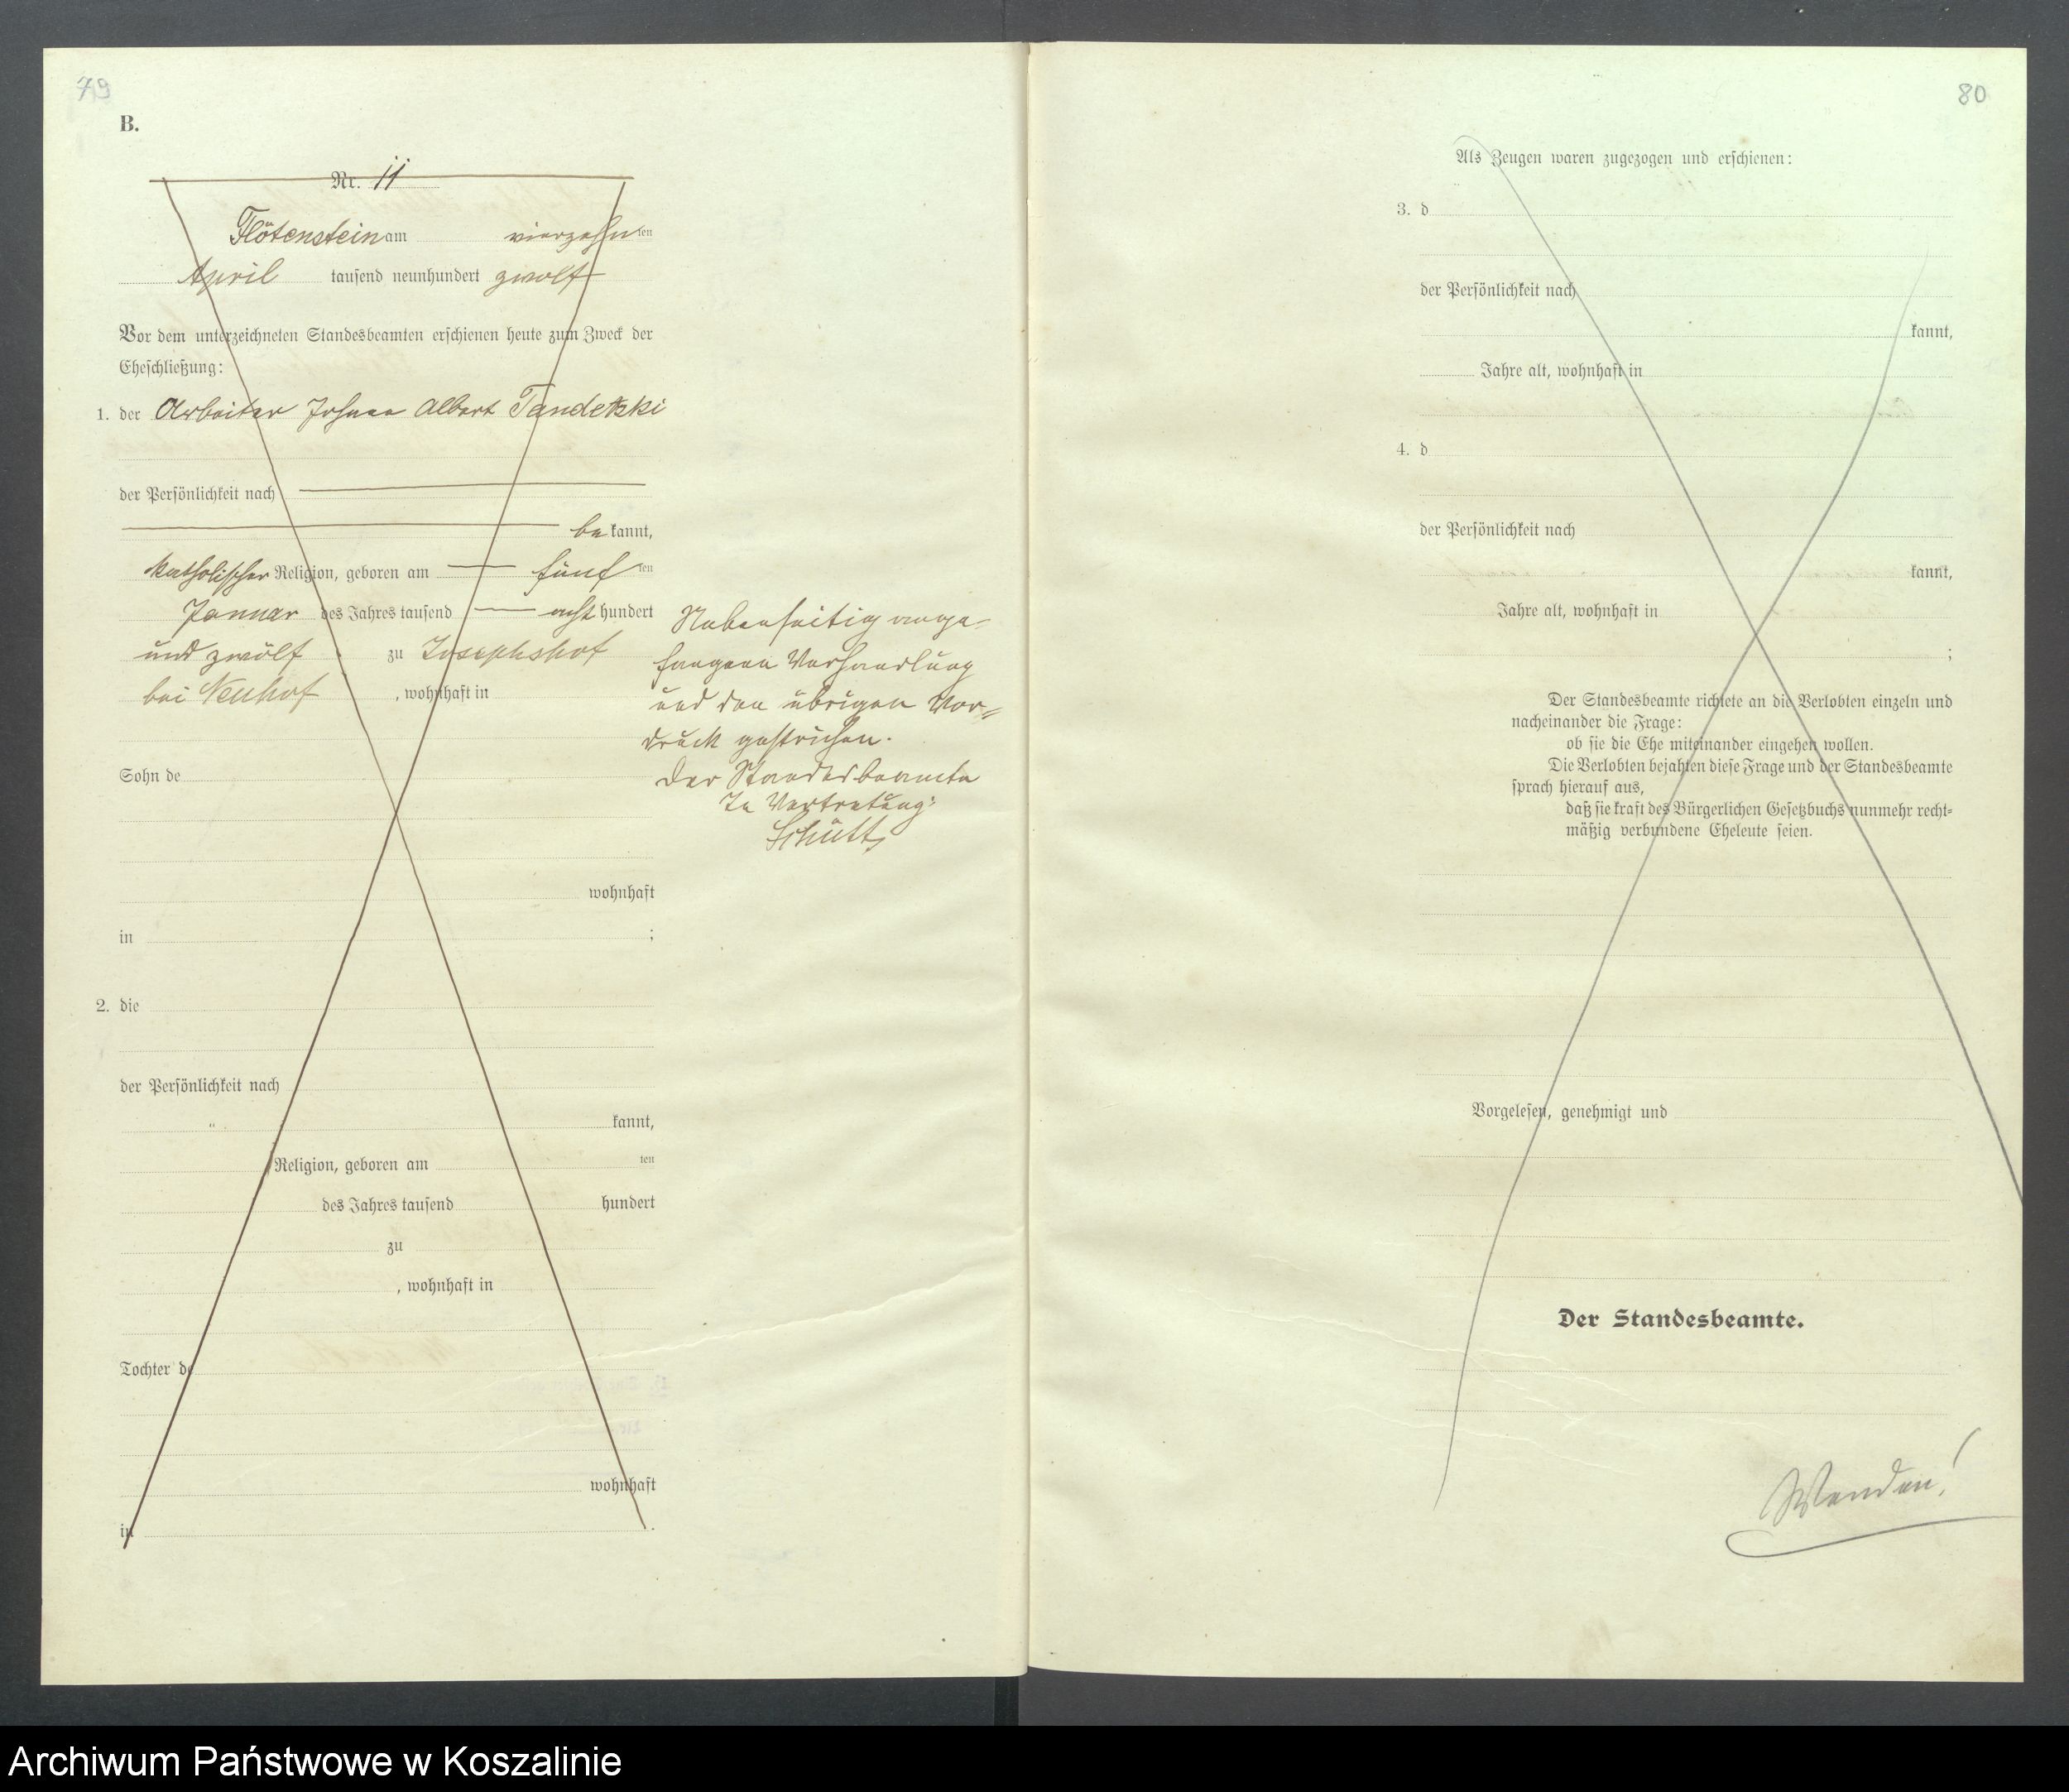 79
B.
Nr. 11
Flötenstein am vierzehn ten
April tausend neunhundert zwölf
Vor dem unterzeichneten Standesbeamten erschienen heute zum Zweck der
Eheschließung:
1. der Arbeiter Johann Albert Tandetzki
der Persönlichkeit nach
be kannt,
katholischer Religion, geboren am fünf ten
Januar des Jahres tausend acht hundert
und zwölf zu Josephshof
bei Neuhof, wohnhaft in
Sohn de
wohnhaft
in ;
2. die
der Persönlichkeit nach
kannt,
Religion, geboren am ten
des Jahres tausend hundert
zu
, wohnhaft in
Tochter de
wohnhaft
in .
Nebenseitig ange-
fangene Verhandlung
und den übrigen Vor=
druck gestrichen.
Der Standesbeamte
In Vertretung:
Schütt
80
Als Zeugen waren zugezogen und erschienen:
3. d
der Persönlichkeit nach
kannt,
Jahre alt, wohnhaft in
4. d
der Persönlichkeit nach
kannt,
Jahre alt, wohnhaft in
;
Der Standesbeamte richtete an die Verlobten einzeln und
nacheinander die Frage:
ob sie die Ehe miteinander eingehen wollen.
Die Verlobten bejahten diese Frage und der Standesbeamte
sprach hierauf aus,
daß sie kraft des Bürgerlichen Gesetzbuchs nunmehr recht=
mäßig verbundene Eheleute seien.
Vorgelesen, genehmigt und
Der Standesbeamte.
Wenden!
Archiwum Państwowe w Koszalinie